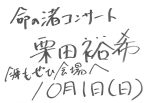 命の渚コンサート
栗田裕希
海もぜひ会場へ
10月1日(日)